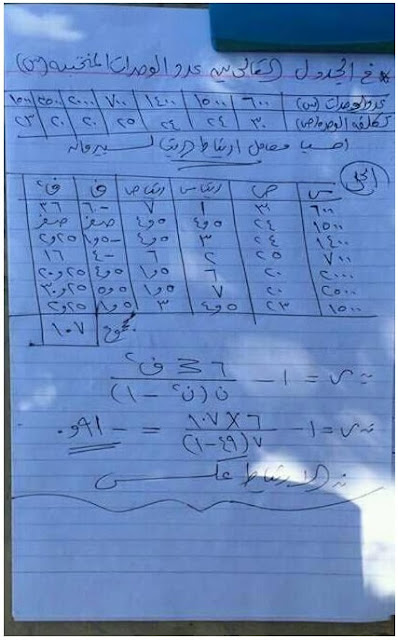 * في الجدول التالي يبين عدد الوحدات المنتجة (س)
عدد الوحدات (س) ٦٠٠ ١٥٠٠ ١٤٠٠ ٧٠٠ ٢٠٠٠ ٢٥٠٠ ١٥٠٠
تكلفة الوحدة (ص) ٣٠ ٢٤ ٢٤ ٢٥ ٢٠ ٢٠ ٢٣
احسب معامل ارتباط الرتب لسبيرمان
الحل
س ص رتب س رتب ص ف ف²
٦٠٠ ٣٠ ١ ٧ -٦ ٣٦
١٥٠٠ ٢٤ ٤,٥ ٤,٥ صفر صفر
١٤٠٠ ٢٤ ٣ ٤,٥ -١,٥ ٢,٢٥
٧٠٠ ٢٥ ٢ ٦ -٤ ١٦
٢٠٠٠ ٢٠ ٦ ١,٥ ٤,٥ ٢٠,٢٥
٢٥٠٠ ٢٠ ٧ ١,٥ ٥,٥ ٣٠,٢٥
١٥٠٠ ٢٣ ٤,٥ ٣ ١,٥ ٢,٢٥
مجموع ١٠٧
∴ ر = ١ - ٦ Σ ف² / ن (ن² - ١)
∴ ر = ١ - ٦ × ١٠٧ / ٧ (٤٩ - ١) = - ٠,٩١
∴ الارتباط عكسي